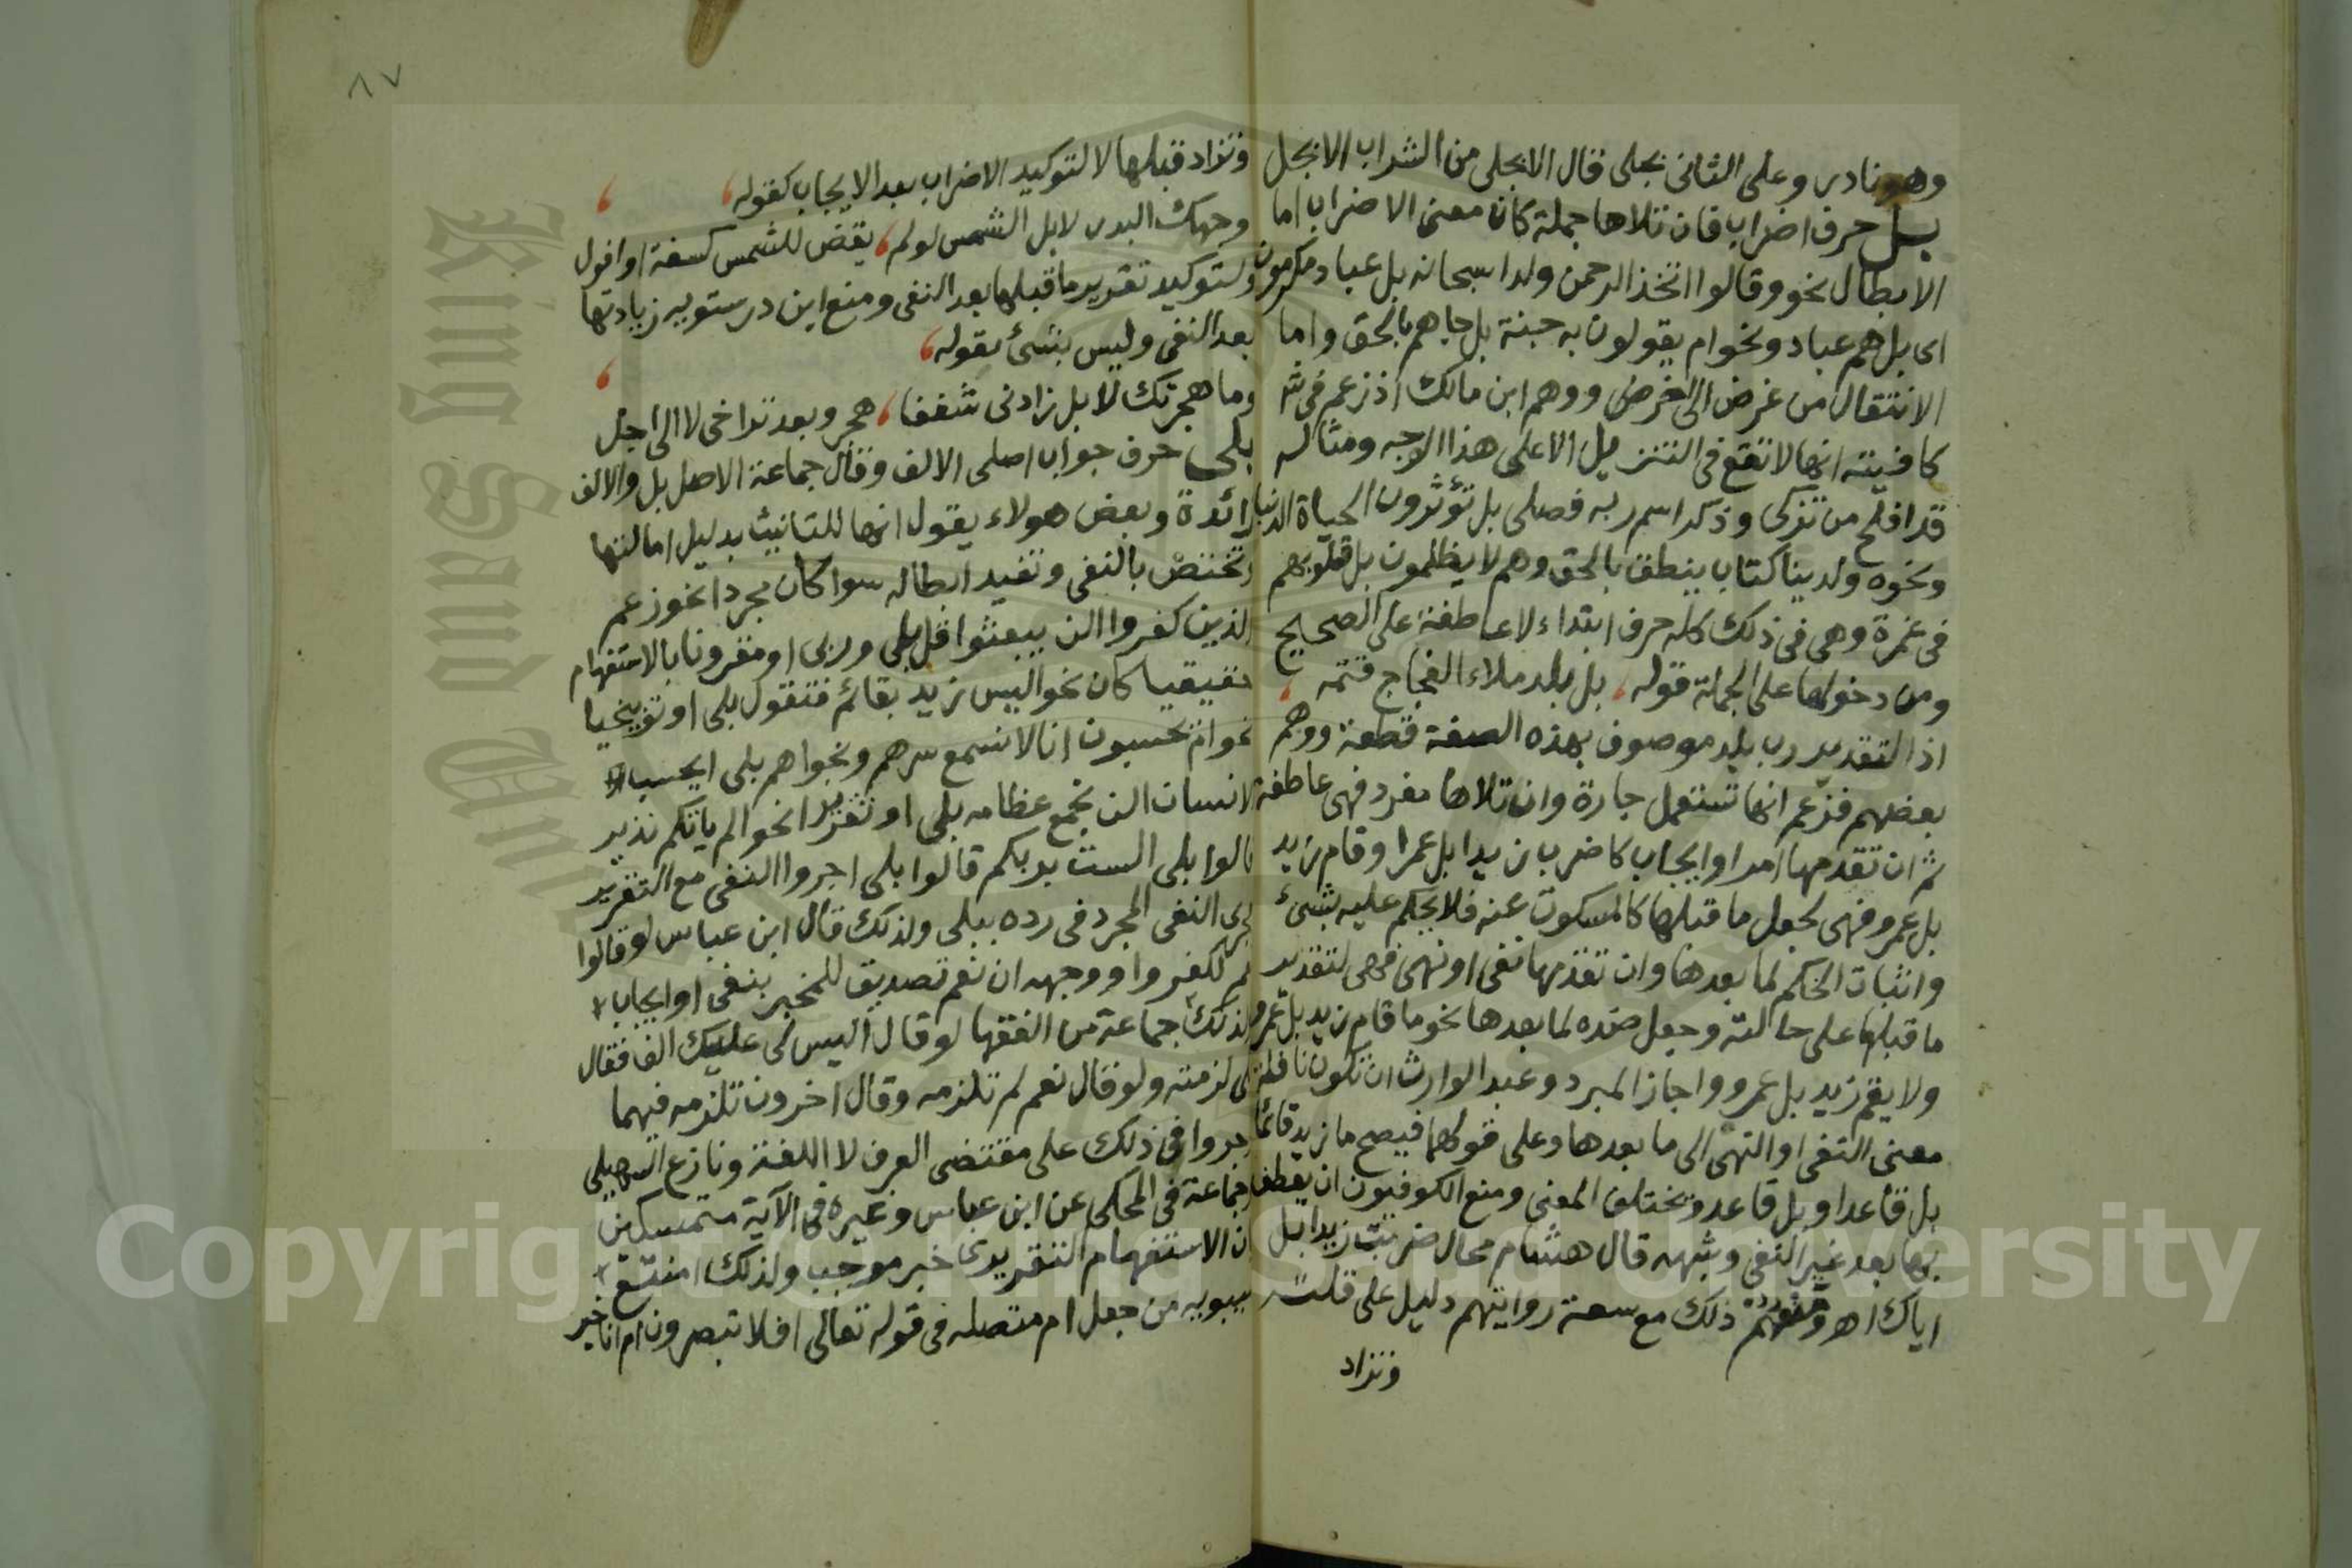 وهو نادر وعلى الثانى بجلى قال الا بجلى من الشراب الا بجل
بل حرف اضراب فان تلاها جملة كان معنى الاضراب اما
الابطال نحو وقالوا اتخذ الرحمن ولدا سبحانه بل عباد مكرمون
اى بل هم عباد ونحو ام يقولون به جنة بل جاهم بالحق واما
الانتقال من غرض الى غرض ووهم ابن مالك اذ زعم فى شرح
كافيته انها لا تقع فى التنزيل الا على هذا الوجه ومثاله
قد افلح من تزكى وذكر اسم ربه فصلى بل تؤثرون الحياة الدنيا
ونحوه ولدينا كتاب ينطق بالحق وهم لا يظلمون بل قلوبهم
فى غمرة وهى فى ذلك كله حرف ابتداء لا عاطفة على الصحيح
ومن دخولها على الجملة قوله، بل بلد ملاء الفجاج قتمه،
اذ التقدير رب بلد موصوف بهذه الصفة قطعة ووهم
بعضهم فزعم انها تستعمل جارة وان تلاها مفرد فهى عاطفة
ثم ان تقدمها امر او ايجاب كاضرب زيدا بل عمرا وقام زيد
بل عمرو فهى تجعل ما قبلها كالمسكوت عنه فلا يحكم عليه بشىء
واثبات الحكم لما بعدها وان تقدمها نفى او نهى فهى لتقدير
ما قبلها على حالته وجعل ضده لما بعدها نحو ما قام زيد بل عمرو
ولا يقم زيد بل عمرو واجاز المبرد وعبد الوارث ان تكون ناقلة
معنى النفى او النهى الى ما بعدها وعلى قولهما فيصح ما زيد قائما
بل قاعدا وبل قاعد ويختلف المعنى ومنع الكوفيون ان يعطف
بها بعد غير النفى وشبهه قال هشام محال ضربت زيدا بل
اياك اهـ ومنعهم ذلك مع سعة روايتهم دليل على قلته
وتزاد
٨٧
وتزاد قبلها لا لتوكيد الاضراب بعد الايجاب كقوله،
وجهك البدر لا بل الشمس لو لم، يقض للشمس كسفة او افول
ولتوكيد تقدير ما قبلها بعد النفى ومنع ابن درستويه زيادتها
بعد النفى وليس بشئ بقوله،
وما هجرتك لا بل زادنى شغفا، هجر وبعد تراخى لا الى اجل
بلى حرف جواب اصلى الالف وقال جماعة الاصل بل والالف
زائدة وبعض هولاء يقول انها للتانيث بدليل امالتها
وتختص بالنفى وتفيد ابطاله سوا كان مجردا نحو زعم
الذين كفروا ان لن يبعثوا قل بلى وربى او مقرونا بالاستفهام
حقيقيا كان نحو اليس زيد بقائم فتقول بلى او توبيخيا
نحو ام تحسبون انا لا نسمع سرهم ونجواهم بلى ايحسب
الانسان الن نجمع عظامه بلى او تقريرا نحو الم ياتكم نذير
قالوا بلى الست بربكم قالوا بلى اجروا النفى مع التقرير
مجرى النفى المجرد فى رده ببلى ولذلك قال ابن عباس لو قالوا
نعم لكفروا ووجهه ان نعم تصديق للمخبر بنفى او ايجاب
ولذلك جماعة من الفقها لو قال اليس لى عليك الف فقال
بلى لزمته ولو قال نعم لم تلزمه وقال اخرون تلزمه فيهما
وجروا فى ذلك على مقتضى العرف لا اللغة ونازع السهيلى
وجماعة فى المحكى عن ابن عباس وغيره فى الآية متمسكين
بان الاستفهام التقريرى خبر موجب ولذلك امتنع
سيبويه من جعل ام متصله فى قوله تعالى افلا تبصرون ام انا خير
King Saud Univ
Copyright © King Saud University